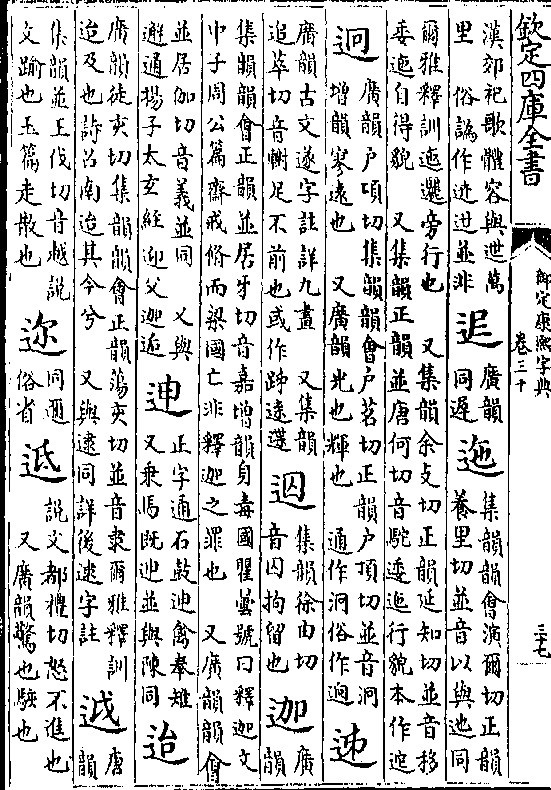 欽定四庫全書
御定康熙字典
卷三十
三七
漢郊祀歌體容與迣萬
里 俗譌作迹迣並非
𨑨
廣韻
同遲
迤
集韻韻會演爾切正韻
養里切並音以與迆同
爾雅釋訓迤邐旁行也 又集韻余支切正韻延知切並音移
委迤自得貌 又集韻正韻並唐何切音駝委迤行貌本作迱
迥
廣韻戶頂切集韻韻會戶茗切正韻戶頂切並音泂
增韻寥遠也 又廣韻光也輝也 通作泂俗作逈
迧
廣韻古文遂字註詳九畫 又集韻
追萃切音轛足不前也或作䟽遠䟆
迿
集韻徐由切
音囚拘留也
迦
廣韻
集韻韻會正韻並居牙切音嘉增韻身毒國瞿曇號曰釋迦文
中子周公篇齋戒脩而梁國亡非釋迦之罪也 又廣韻韻會
並居伽切音義並同 又與
邂通揚子太玄經迎父迦逅
迧
正字通石鼓迧禽奉雉
又乗馬既迧並與陳同
迨
廣韻徒亥切集韻韻會正韻蕩亥切並音隶爾雅釋訓
迨及也詩召南迨其今兮 又與逮同詳後逮字註
䟠
唐韻
集韻並王伐切音越説
文踰也玉篇走散也
迩
同邇
俗省
䢑
説文都禮切怒不進也
又廣韻驚也駭也